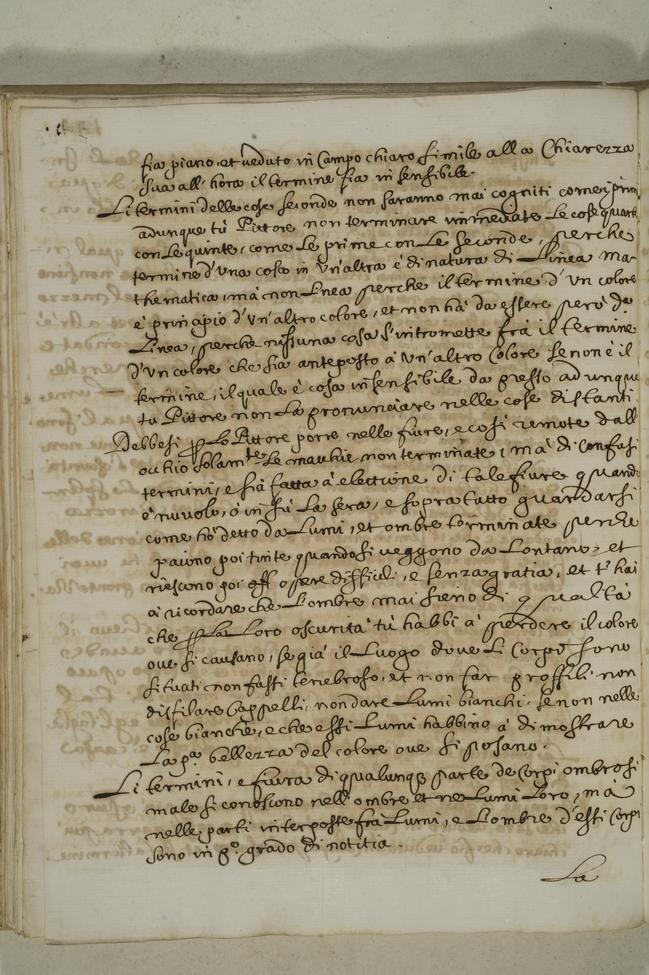 sia piano, et veduto in Campo chiaro simile alla Chiarezza
sua all'hora il termine sia in sensibile.
Li termini delle cose seconde non saranno mai cogniti come i prim
adunque tù Pittore non terminare immediate Le cose quarte
con Le quinte, come Le prime con Le seconde, perche
termine d'una cosa in Un'altra è di natura di Linea ma-
thematica, mà non Linea perche il termine d'un colore
è principio d'Un'altro colore, et non hà da essere però da
Linea, perche nissuna cosa s'intromette frà il termine
d'Un colore che sia anteposto à Un'altro Colore se non è il
termine, il quale è cosa insensibile da presso adunque
tù Pittore non La pronunciare nelle cose distanti
Debbesi p Lo Pittore porre nelle fiure, e cosi remote dall
occhio solamte Le machie non terminate, mà di Confusi
termini, e sia fatta à elettione di tale fiure quand
è nuvolo, ò in sù La sera, e sopra tutto guardarsi
come hò detto da Lumi, et ombre terminate perche
paiono poi tinte quando si veggono da Lontano, et
riescono poi opere difficili, e senza gratia, et t' hai
à ricordare che L'ombre mai sieno di qualtà
che p La Loro oscurità tù habbi à perdere il colore
ove si causano, se già il Luogo dove Li Corpi sono
situati non fusti tenebroso, et non far proffili, non
disfilare Cappelli, non dare Lumi bianchi, se non nelle
cose bianche, e che essi Lumi habbino à dimostrare
La pa bellezza del colore ove si posano.
Li termini, e fiura di qualunque parte de Corpi ombrosi
male si conoscono nell'ombre et ne Lumi Loro, mà
nelle parti interposte frà Lumi, e L'ombre d'essi Corpi
sono in po. grado di notitia.
La